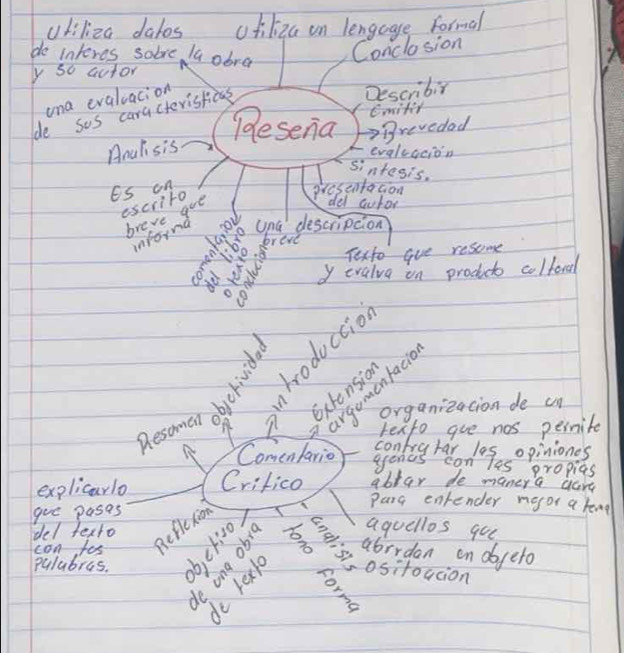 Utiliza datos
de interes sobre la obra
y so autor
Utiliza un lenguage formal
Conclosion
una evaluacion
de sus caracteristicas
Reseña
Describir
Emitir
Brevedad
evalcación
sintesis.
Analisis
presentacion
del autor
Es un
escrito
breve que
informa
comentario
del libro
o texto
conclucion
una descripcion
breve
Texto que resome
y evalva un producto coltoral
Resomen
objetividad
introducción
Extension
argumentacion
Comentario
Critico
organizacion de un
texto que nos permite
contratar las opiniones
agenas con las propias
ablar de manera clara
para entender mejor a tema
explicarlo
que pasas
del texto
con tos
palabras.
Reflexion
objetivo
de una obra
de texto
analisis
tono forma
aquellos que
abordan on objeto
ositoacion